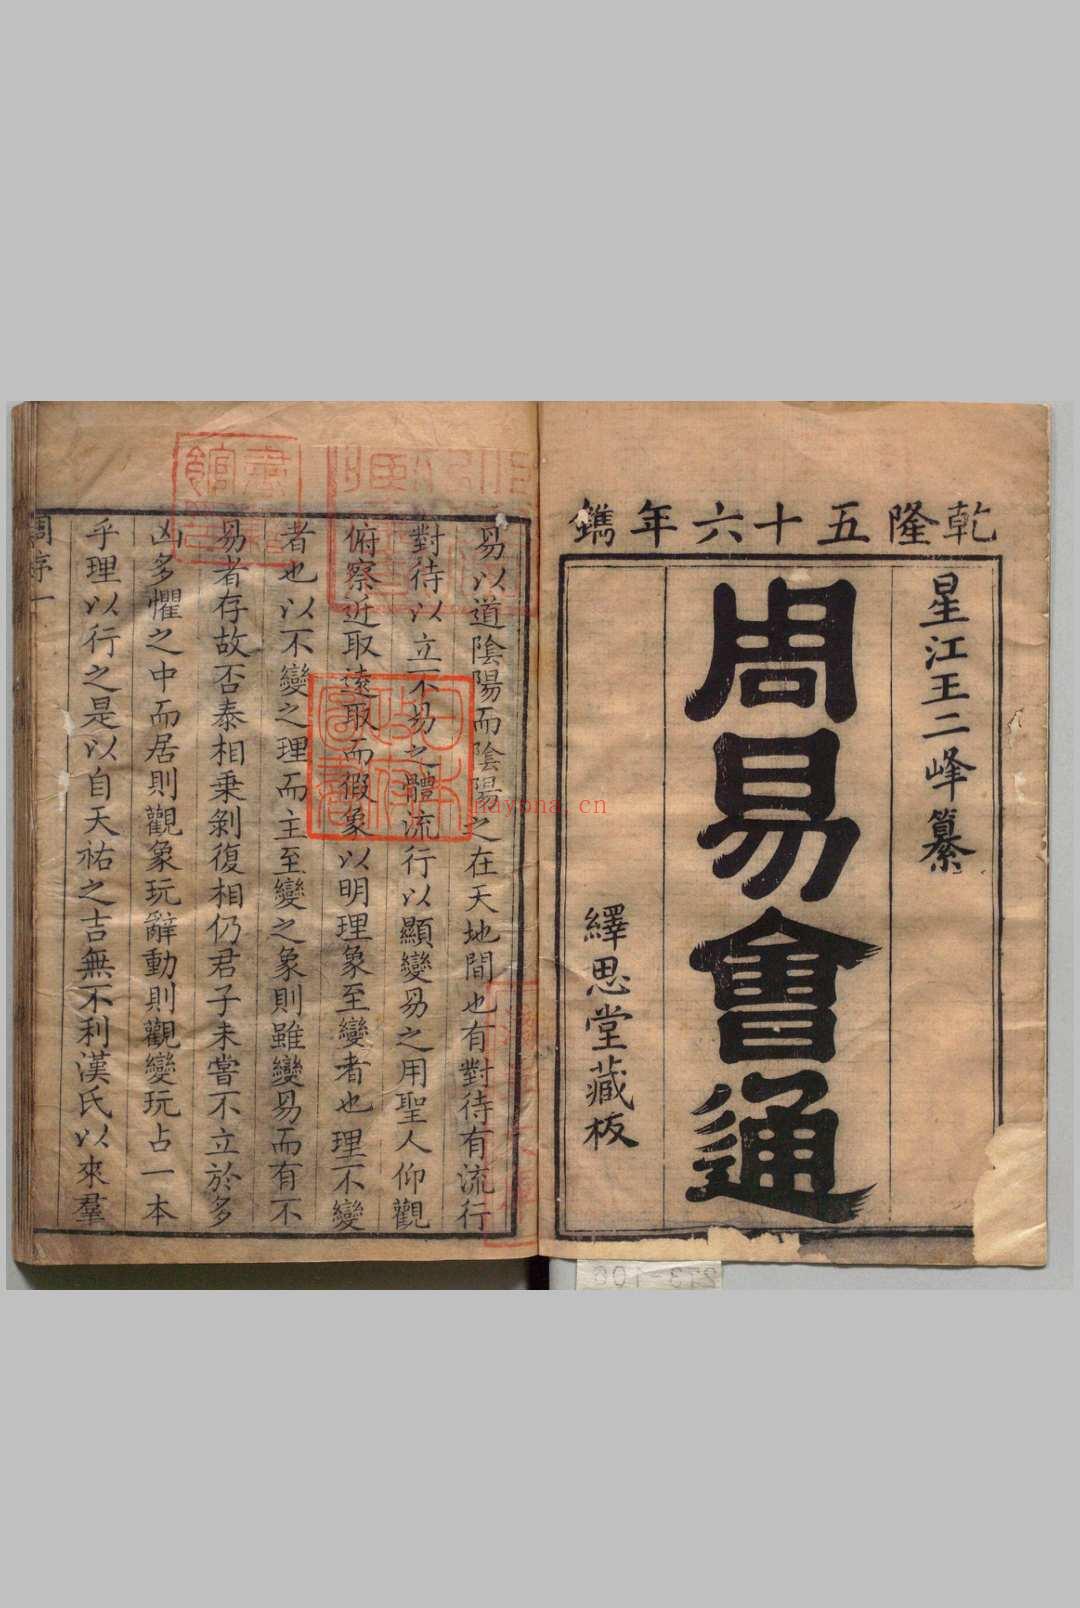 乾隆五十六年鐫
星江王二峰纂
周易會通
繹思堂藏板
易以道陰陽而陰陽之在天地間也有對待有流行
對待以立不易之體流行以顯變易之用聖人仰觀
俯察近取遠取而假象以明理象至變者也理不變
者也以不變之理而主至變之象則雖變易而有不
易者存故否泰相乘剝復相仍君子未嘗不立於多
凶多懼之中而居則觀象玩辭動則觀變玩占一本
乎理以行之是以自天祐之吉無不利漢氏以來羣
周序一
nayona.cn
273-106